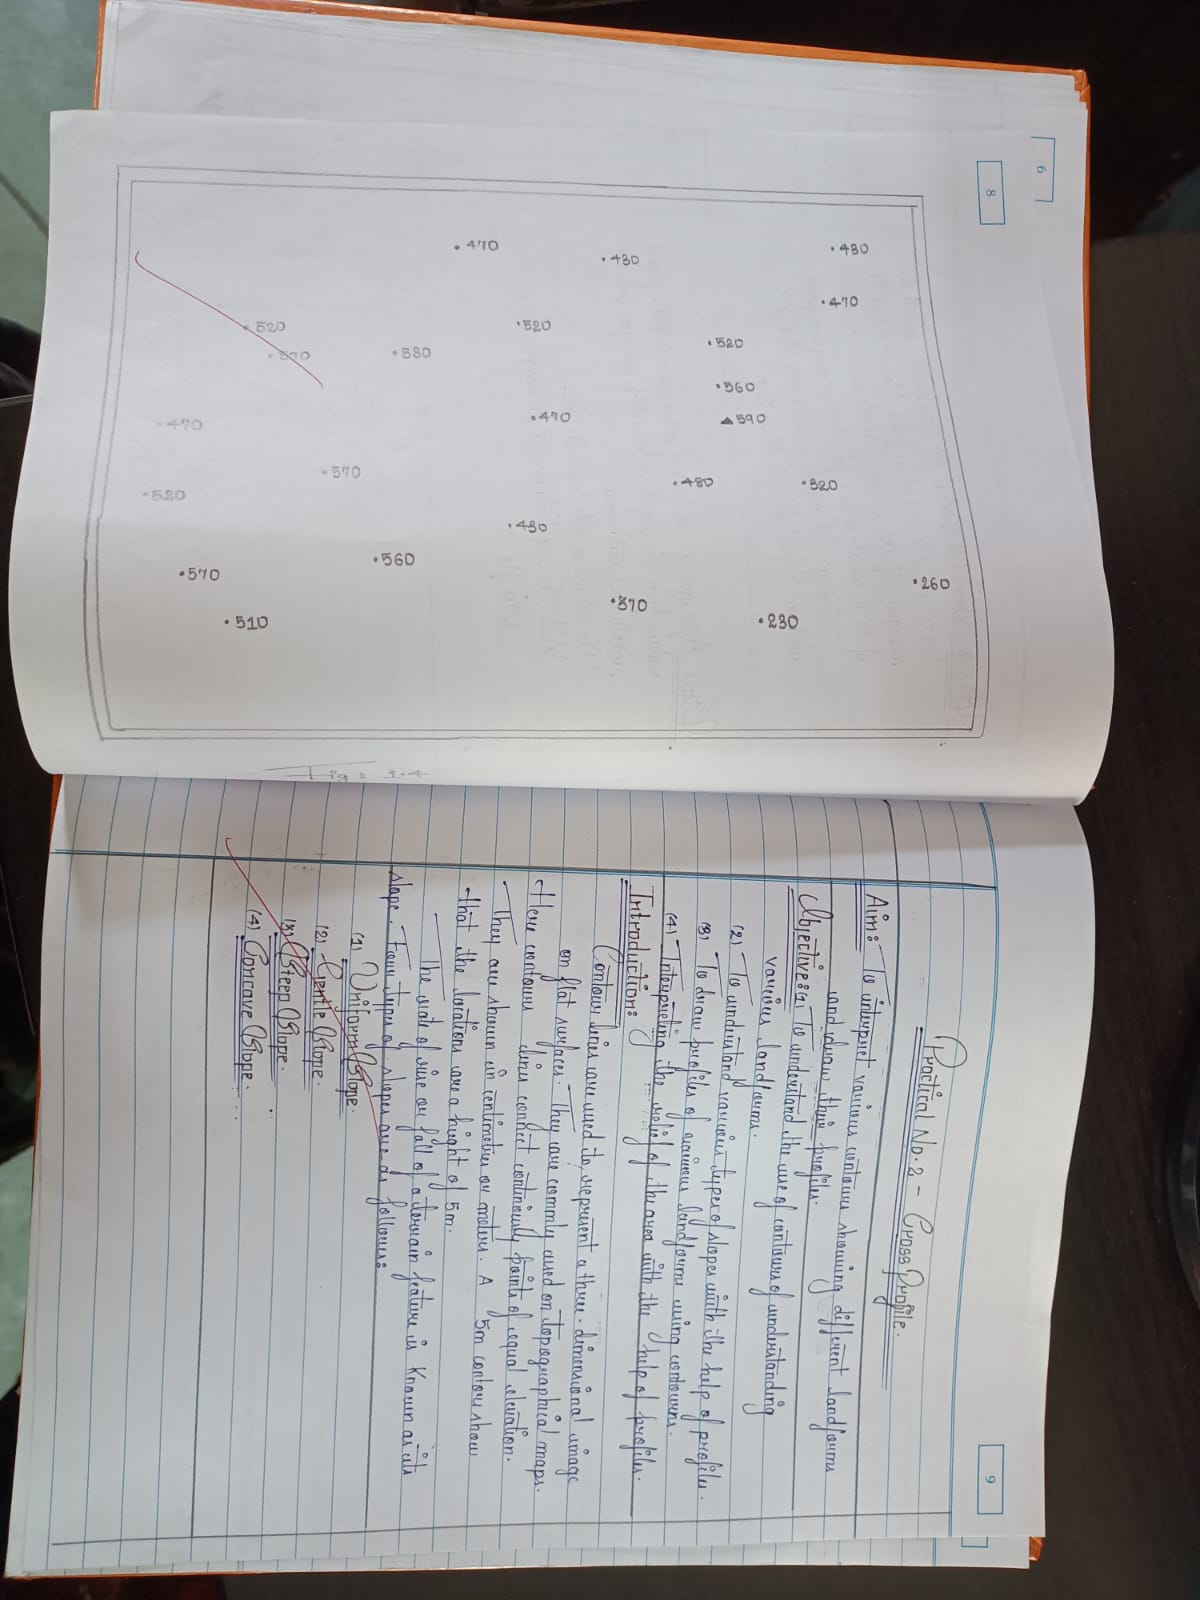 6
8
.470
.430
.430
.470
.520
.520
.520
.570
.580
.560
▲590
.470
.470
.570
.480
.320
.520
.430
.560
.570
.370
.260
.510
.230
Fig = 1.4
9
Practical No: 2 - Cross Profile.
Aim: To interpret various contours showing different landforms
and draw their profiles.
Objective: (1) To understand the use of contours of understanding
various landforms.
(2) To understand various types of slopes with the help of profiles.
(3) To draw profiles of various landforms using contours.
(4) Interpreting the relief of the area with the help of profiles.
Introduction:
Contour lines are used to represent a three-dimensional image
on flat surfaces. They are commly used on topographical maps.
Here contours lines connect continously points of equal elevation.
They are shown in centimetres or meters. A 5m contour show
that the locations are a hight of 5m.
The rate of rise or fall of a terrain feature is known as its
slope. Four types of slopes are as follows:
(1) Uniform Slope.
(2) Gentle Slope.
(3) Steep Slope.
(4) Concave Slope.